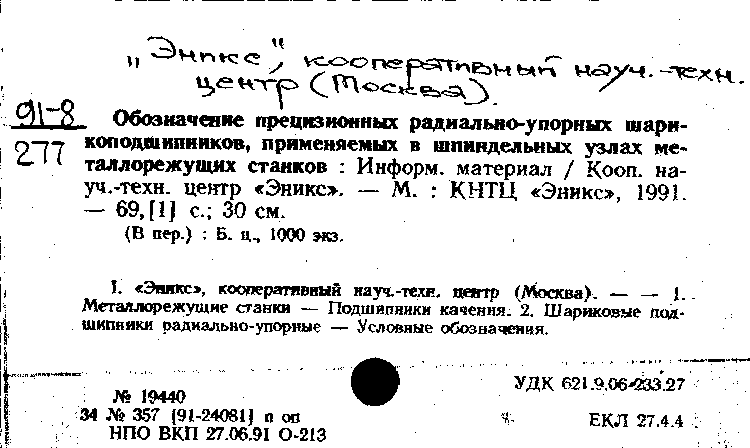 „Эникс", кооперативный науч.-техн.
центр (Москва).
91-8
277
Обозначение прецизионных радиально-упорных шари-
коподшипников, применяемых в шпиндельных узлах ме-
таллорежущих станков : Информ. материал / Кооп. на-
уч.-техн. центр «Эникс». — М. : КНТЦ «Эникс», 1991.
— 69,[1] с.; 30 см.
(В пер.) : Б. ц., 1000 экз.
1. «Эникс», кооперативный науч.-техн. центр (Москва). — — 1.
Металлорежущие станки — Подшипники качения. 2. Шариковые под-
шипники радиально-упорные — Условные обозначения.
УДК 621.9.06-233.27
№ 19440
34 № 357 [91-24081] п оп
ЕКЛ 27.4.4
НПО ВКП 27.06.91 О-213